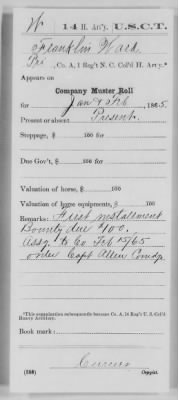 W 14 H. Art'y. U.S.C.T.
Franklin Ward
Pvt, Co. A, 1 Reg't N. C. Col'd H. Art'y.*
Appears on
Company Muster Roll
for Jan & Feb, 1865.
Present or absent Present
Stoppage, $ 100 for
Due Gov't, $ 100 for
Valuation of horse, $ 100
Valuation of horse equipments, $ 100
Remarks: First installment
Bounty due $100.
Assg. to Co Feb 13/65
order Capt Allen Comdg.
*This organization subsequently became Co. A, 14 Reg't U. S. Col'd
Heavy Artillery.
Book mark:
(358)
Copyist.